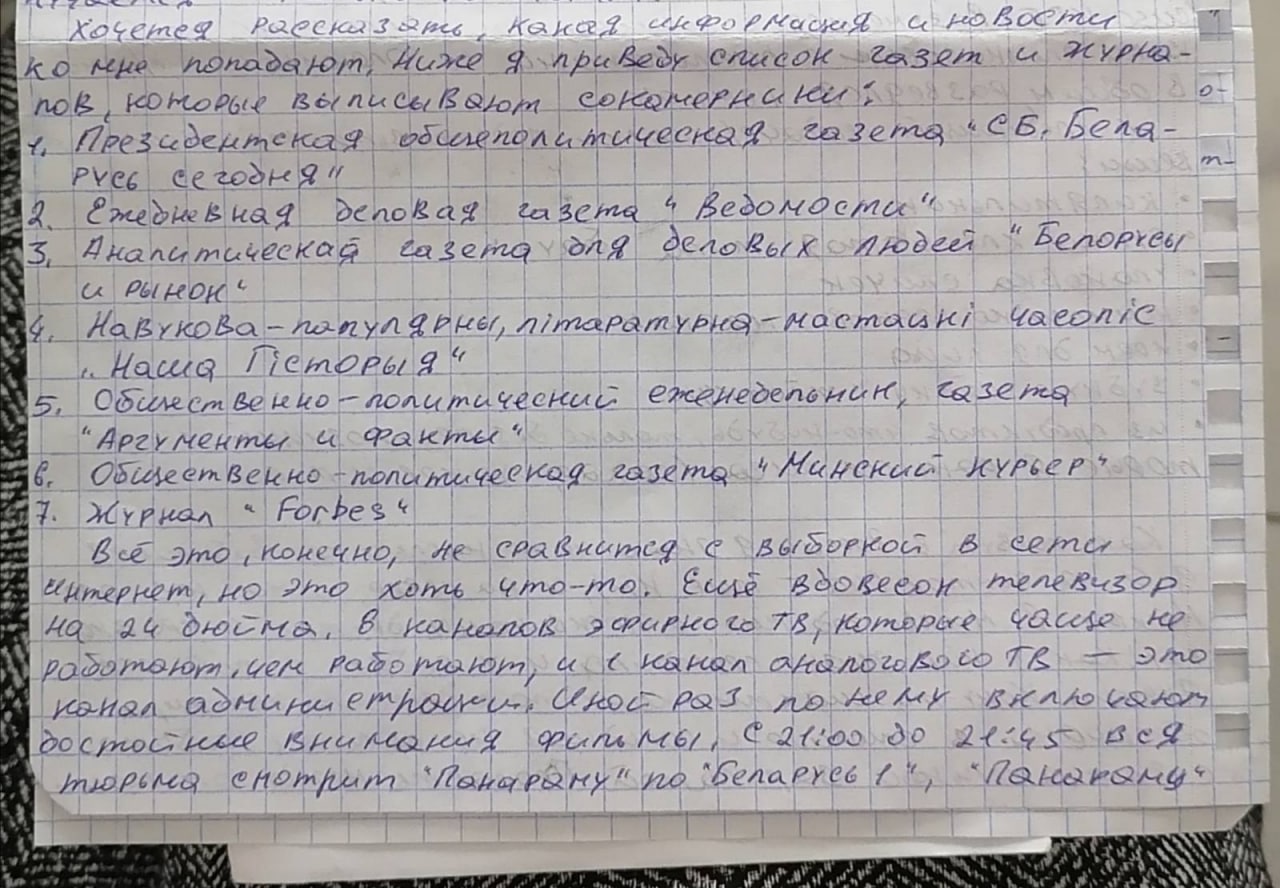 Хочется рассказать, какая информация и новости
ко мне попадают. Ниже я приведу список газет и журна-
лов, которые выписывают сокамерники:
1. Президентская общеполитическая газета "СБ. Бела-
русь сегодня"
2. Ежедневная деловая газета "Ведомости"
3. Аналитическая газета для деловых людей "Белорусы
и рынок"
4. Навукова-папулярны, літаратурна-мастацкі часопіс
"Наша Гісторыя"
5. Общественно-политический еженедельник, газета
"Аргументы и факты"
6. Общественно-политическая газета "Минский курьер"
7. Журнал "Forbes"
Всё это, конечно, не сравнится с выборкой в сети
интернет, но это хоть что-то. Ещё вдовесок телевизор
на 24 дюйма. 8 каналов эфирного ТВ, которые чаще не
работают, чем работают, и 1 канал аналогового ТВ — это
канал администрации. Иной раз по нему включают
достойные внимания фильмы. С 21:00 до 21:45 вся
тюрьма смотрит "Панараму" по "Беларусь 1", "Панараму"